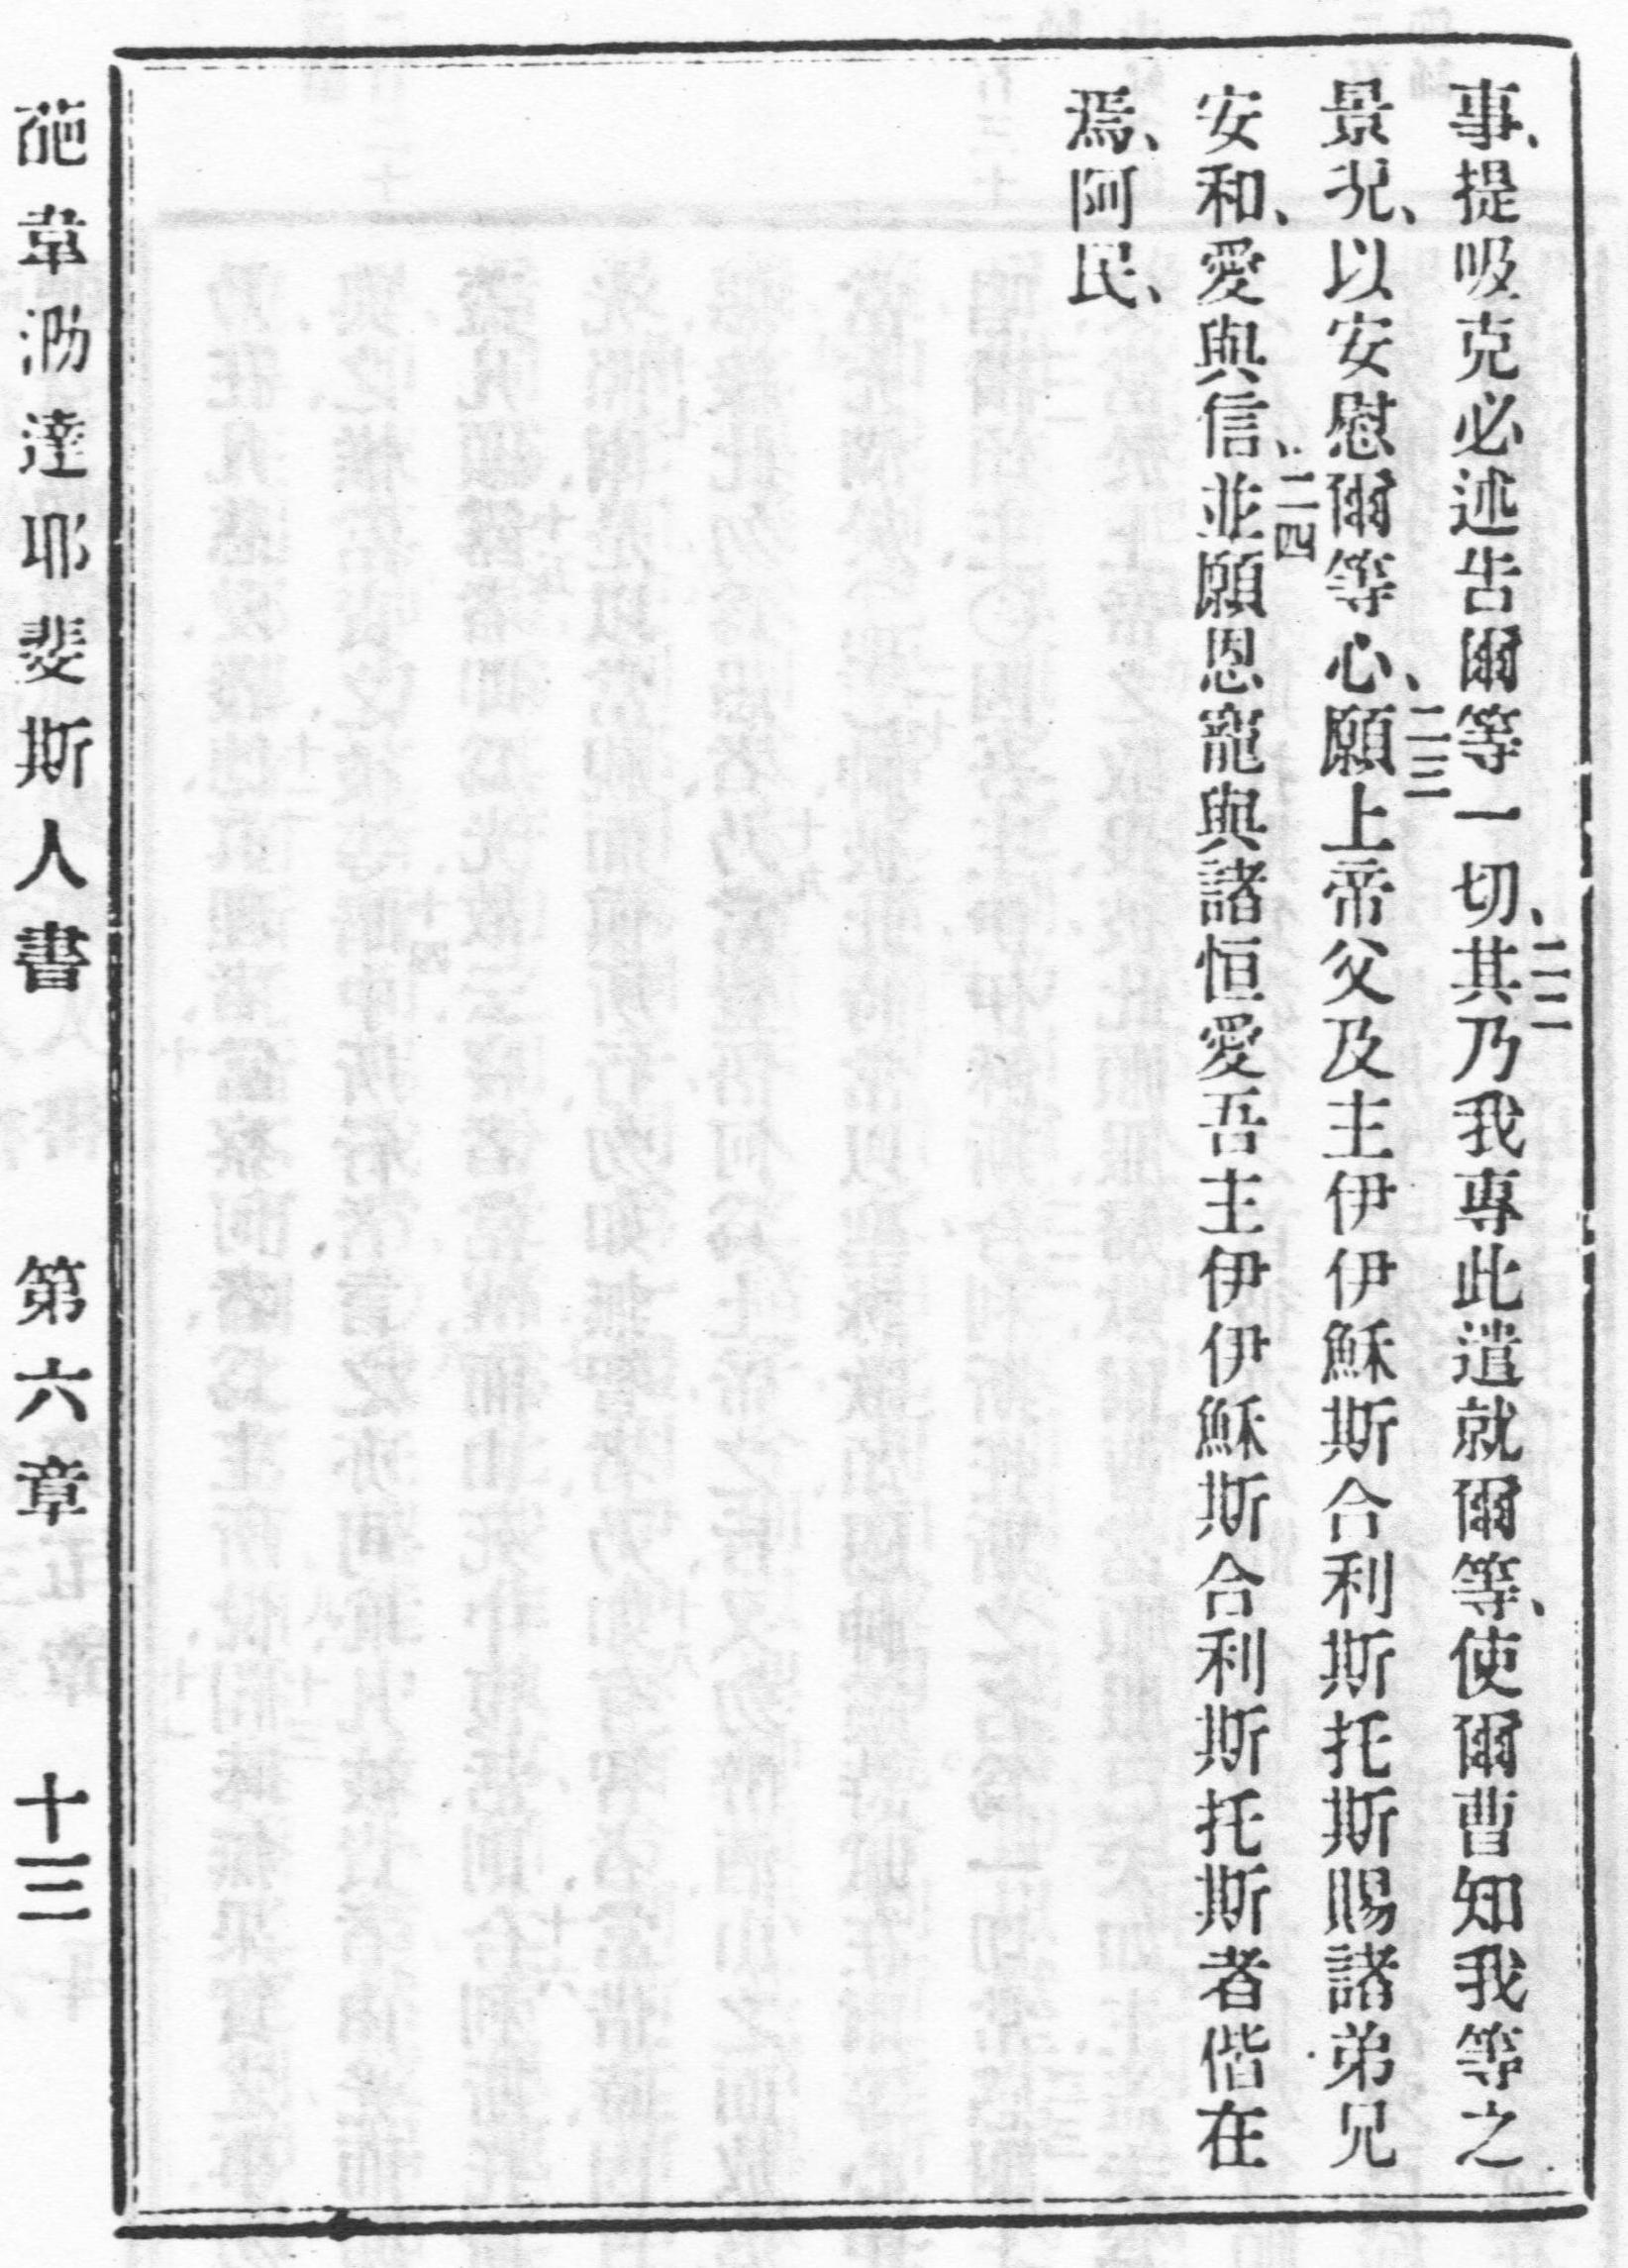 事、提吸克必述告爾等一切、二二其乃我專此遣就爾等、使爾曹知我等之
景況、以安慰爾等心、二三願上帝父及主伊伊穌斯合利斯托斯賜諸弟兄
安和、愛與信、二四並願恩寵與諸恒愛吾主伊伊穌斯合利斯托斯者偕在
焉、阿民、
達耶斐斯人書 第六章 十三